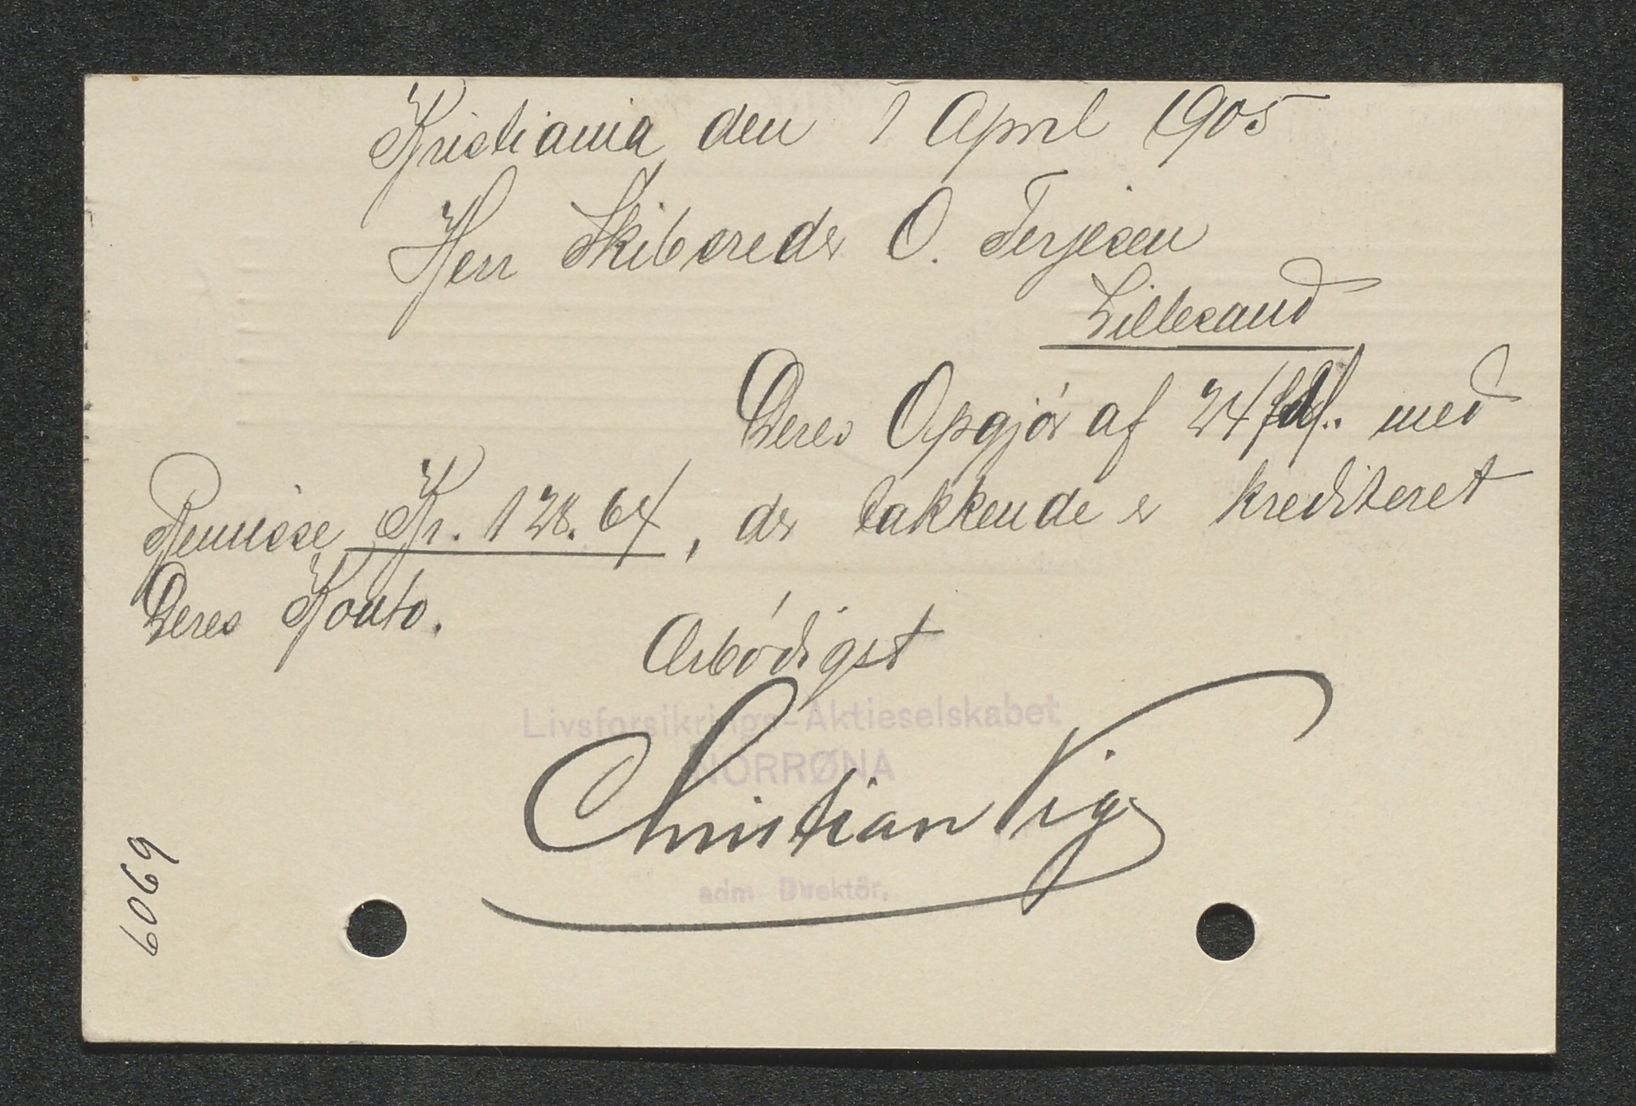 Kristiania den 1 April 1905
Herr Skibsreder O. Terjesen
Lillesand
Deres Opgjör af 24/ med
Remisse Kr. 128.64, der takkende er krediteret
Deres Konto.
Ærbödigst
Livsforsikrings-Aktieselskabet
NORRØNA
Christian Vig
adm Direktör.
6069